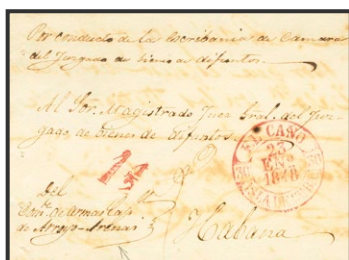 Por conducto de la Escribania de Camara
del Juzgado de bienes de difuntos.
Al Sor. Magistrado Juez Gral. del Juz-
gado de bienes de difuntos.
EL CAÑO
23
ENO
1848
Del
de Armas
de Arroyo-Arenas
Habana